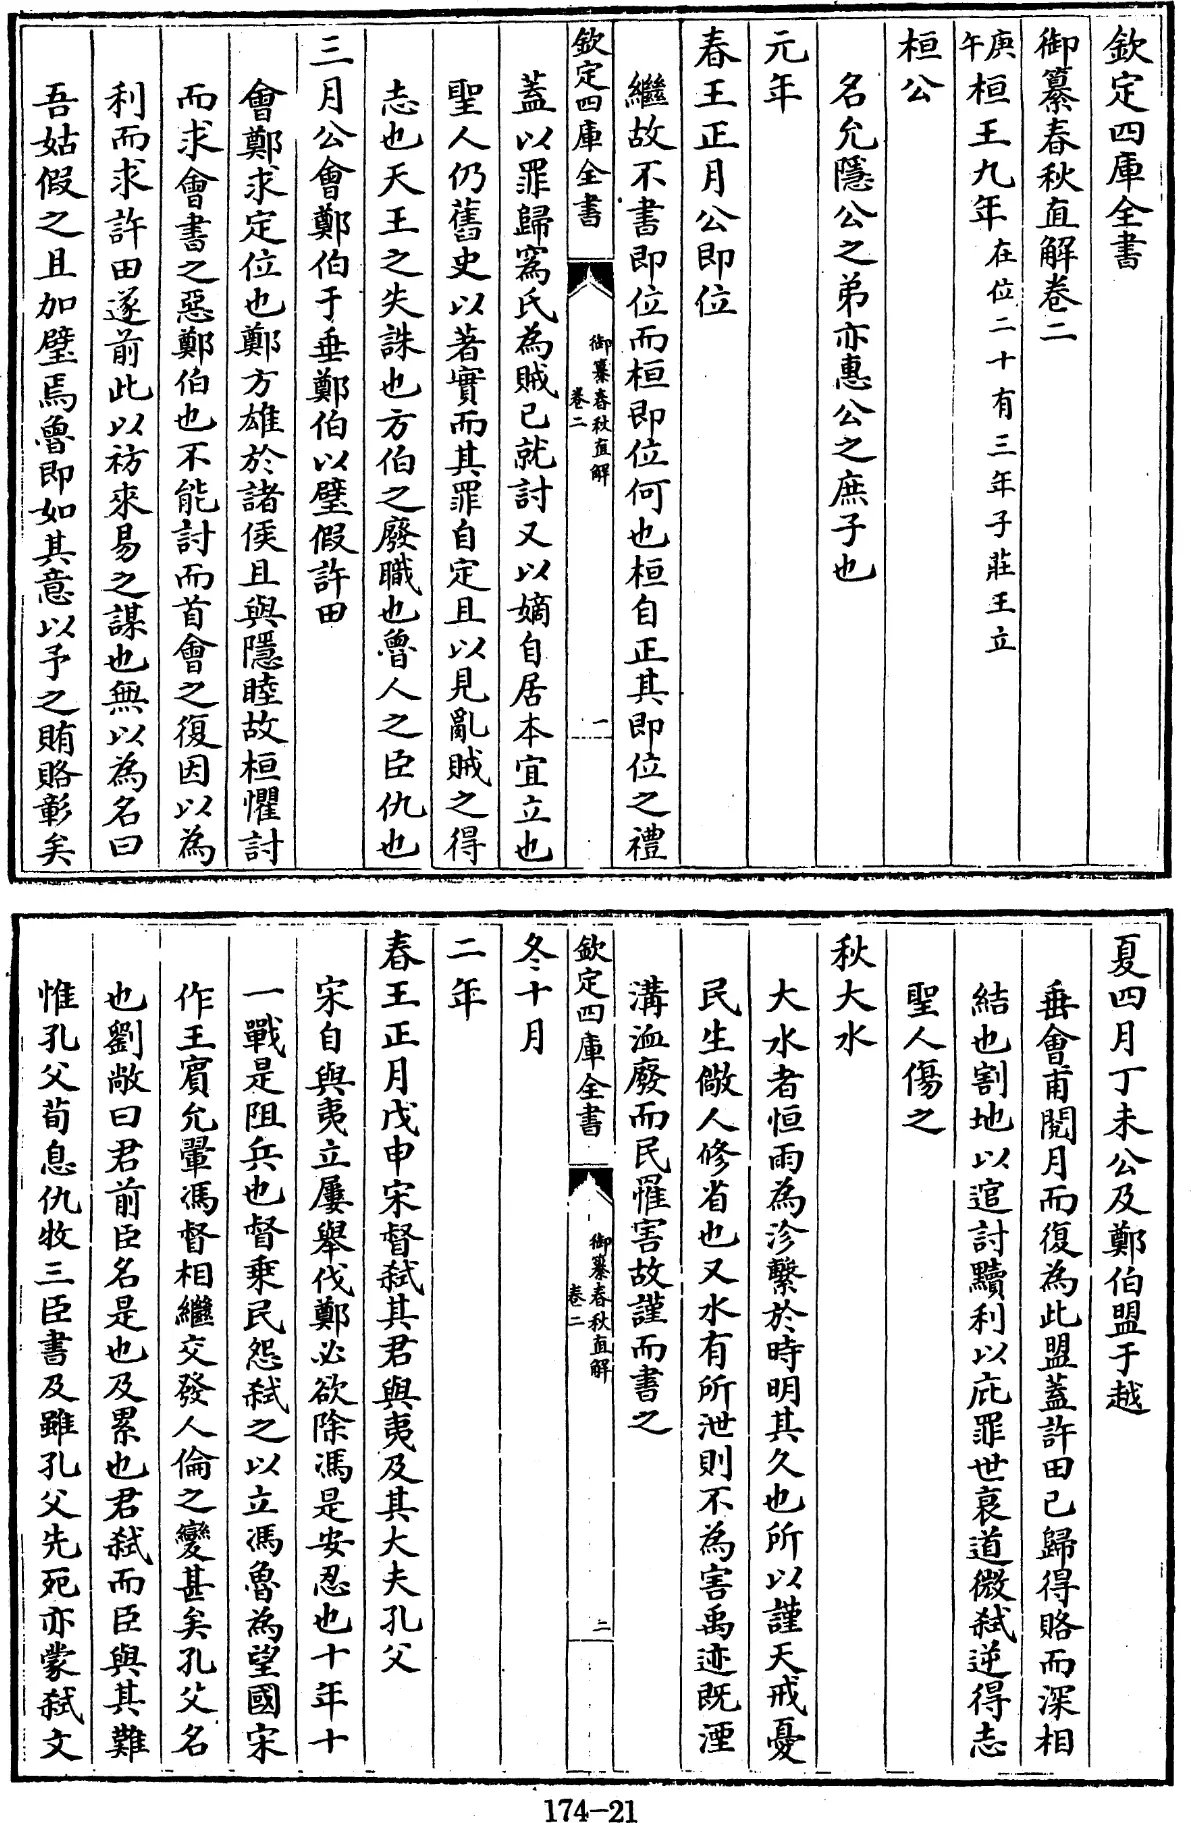 欽定四庫全書
御纂春秋直解卷二
庚午桓王九年在位二十有三年子莊王立
桓公
名允隱公之弟亦惠公之庶子也
元年
春王正月公即位
繼故不書即位而桓即位何也桓自正其即位之禮
欽定四庫全書
御纂春秋直解
卷二
一
蓋以罪歸寪氏為賊已就討又以嫡自居本宜立也
聖人仍舊史以著實而其罪自定且以見亂賊之得
志也天王之失誅也方伯之廢職也魯人之臣仇也
三月公會鄭伯于垂鄭伯以璧假許田
會鄭求定位也鄭方雄於諸侯且與隱睦故桓懼討
而求會書之惡鄭伯也不能討而首會之復因以為
利而求許田遂前此以祊來易之謀也無以為名曰
吾姑假之且加璧焉魯即如其意以予之賄賂彰矣
夏四月丁未公及鄭伯盟于越
垂會甫閱月而復為此盟蓋許田已歸得賂而深相
結也割地以逭討黷利以庇罪世衰道微弑逆得志
聖人傷之
秋大水
大水者恒雨為沴繫於時明其久也所以謹天戒憂
民生儆人修省也又水有所泄則不為害禹迹既湮
溝洫廢而民罹害故謹而書之
欽定四庫全書
御纂春秋直解
卷二
二
冬十月
二年
春王正月戊申宋督弑其君與夷及其大夫孔父
宋自與夷立屢舉伐鄭必欲除馮是安忍也十年十
一戰是阻兵也督乘民怨弑之以立馮魯為望國宋
作王賓允翬馮督相繼交發人倫之變甚矣孔父名
也劉敞曰君前臣名是也及累也君弑而臣與其難
惟孔父荀息仇牧三臣書及雖孔父先死亦蒙弑文
174-21